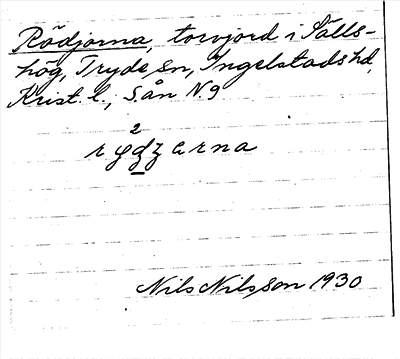 Rödjorna, torvjord i Sälls-
hög, Tryde sn, Ingelstads hd,
Krist. l., S. ån N 9
2
Nils Nilsson 1930